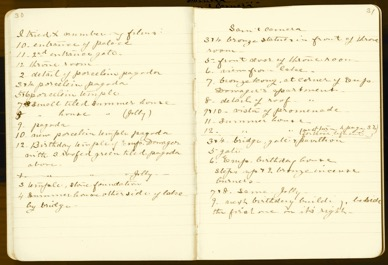 30
I tried X number of films:
10. entrance of palace
11. 2nd entrance gate.
12 throne room
2 detail of porcelain pagoda
3+4 porcelain pagoda
5+6 porcelain temple
7+8 small tiled summer house
" house " (Jolly)
9 pagoda
10 new porcelain temple pagoda
12. Birthday temple of Emp. Dowager
with 3 roofed green tiled pagoda
above.
" " Jolly
3 temple, stone foundation
4 Summer house other side of lake
by bridge
31
Same camera
3+4 bronze statues in front of throne
room
5- front door of throne room
6. view from lake
7. bronze at corner of Emp.
Dowager's apartment.
8- detail of roof "
9+10. vista of promenade
11. Summer house
12. " " (
3+4 bridge, gate + pavilion
5 gate
6 Temp. birthday house
steps up + 2 bronze incense
burners
7+8. Same Jolly
9. north birthday building, beside
the first one on its right.